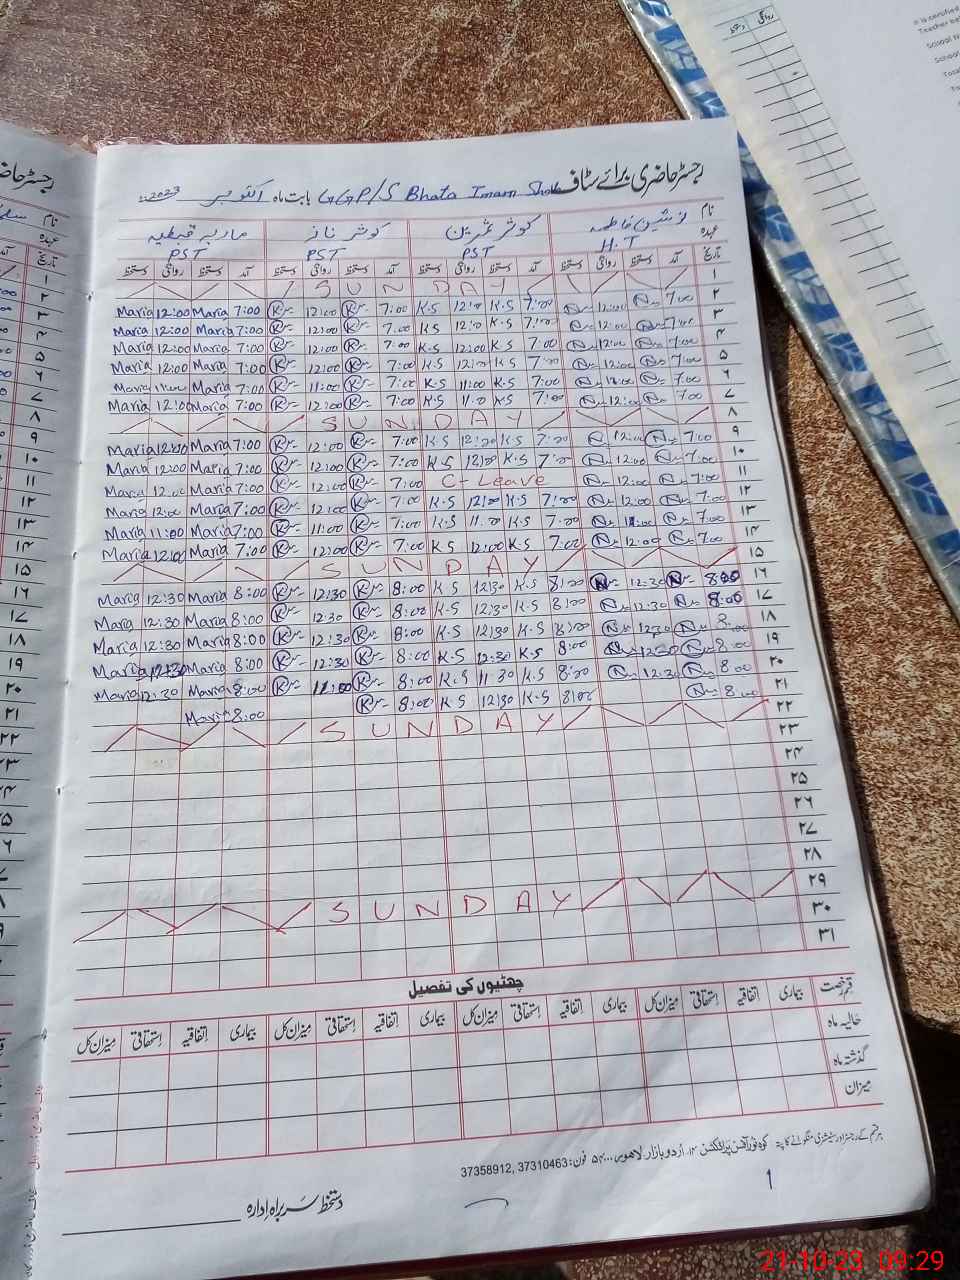 رجسٹر حاضری برائے سٹاف GGP/S Bhata Imam Shah بابت ماہ اکتوبر 2023ء
نام نوشین فاطمہ کوثر نسرین کوثر ناز ماریہ قبطیہ
عہدہ H.T PST PST PST
تاریخ آمد دستخط روانگی دستخط آمد دستخط روانگی دستخط آمد دستخط روانگی دستخط آمد دستخط روانگی دستخط
۱ SUNDAY
۲ Maria 12:00 Maria 7:00 K 12:00 K 7:00 K.S 12:00 K.S 7:00 N 12:00 N 7:00
۳ Maria 12:00 Maria 7:00 K 12:00 K 7:00 K.S 12:00 K.S 7:00 N 12:00 N 7:00
۴ Maria 12:00 Maria 7:00 K 12:00 K 7:00 K.S 12:00 K.S 7:00 N 12:00 N 7:00
۵ Maria 12:00 Maria 7:00 K 12:00 K 7:00 K.S 12:00 K.S 7:00 N 12:00 N 7:00
۶ Maria 11:00 Maria 7:00 K 11:00 K 7:00 K.S 11:00 K.S 7:00 N N 7:00
۷ Maria 12:00 Maria 7:00 K 12:00 K 7:00 K.S K.S 7:00 N 12:00 N 7:00
۸ SUNDAY
۹ Maria 12:00 Maria 7:00 K 12:00 K 7:00 K.S 12:00 K.S 7:00 N 12:00 N 7:00
۱۰ Maria 12:00 Maria 7:00 K 12:00 K 7:00 K.S 12:00 K.S 7:00 N 12:00 N 7:00
۱۱ Maria 12:00 Maria 7:00 K 12:00 K 7:00 C-Leave N 12:00 N 7:00
۱۲ Maria 12:00 Maria 7:00 K 12:00 K 7:00 K.S 12:00 K.S 7:00 N 12:00 N 7:00
۱۳ Maria 11:00 Maria 7:00 K 11:00 K 7:00 K.S 11:00 K.S 7:00 N 11:00 N 7:00
۱۴ Maria 12:00 Maria 7:00 K 12:00 K 7:00 K.S 12:00 K.S 7:00 N 12:00 N 7:00
۱۵ SUNDAY
۱۶ Maria 12:30 Maria 8:00 K 12:30 K 8:00 K.S 12:30 K.S 8:00 N 12:30 N 8:00
۱۷ Maria 12:30 Maria 8:00 K 12:30 K 8:00 K.S 12:30 K.S 8:00 N 12:30 N 8:00
۱۸ Maria 12:30 Maria 8:00 K 12:30 K 8:00 K.S 12:30 K.S 8:00 N 12:30 N 8:00
۱۹ Maria 12:30 Maria 8:00 K 12:30 K 8:00 K.S 12:30 K.S 8:00 N N 8:00
۲۰ Maria 12:30 Maria 8:00 K 11:00 K 8:00 K.S 11:30 K.S 8:00 N 12:30 N 8:00
۲۱ Maria 8:00 K 8:00 K.S 12:30 K.S 8:00 N 8:00
۲۲ SUNDAY
۲۳
۲۴
۲۵
۲۶
۲۷
۲۸
۲۹ SUNDAY
۳۰
۳۱
چھٹیوں کی تفصیل
قسم رخصت بیماری اتفاقیہ استحقاقی میزان کل بیماری اتفاقیہ استحقاقی میزان کل بیماری اتفاقیہ استحقاقی میزان کل بیماری اتفاقیہ استحقاقی میزان کل
حالیہ ماہ
گذشتہ ماہ
میزان
ہر قسم کے رجسٹر اور سٹیشنری منگوانے کا پتہ کوہ نور آفسٹ پرنٹنگ اردو بازار لاہور فون: 37310463, 37358912
1
دستخط سربراہ ادارہ
روانگی دستخط
It is certified
Teacher be
School N
School
Tota
To
21-10-23 09:29